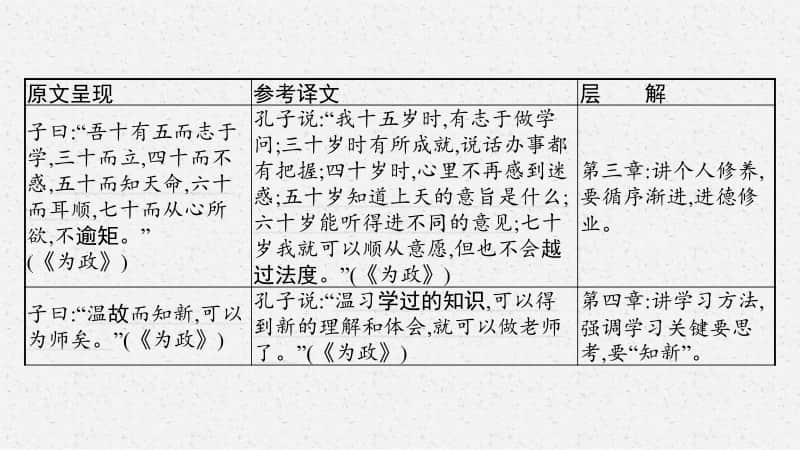 原文呈现
参考译文
层　　解
子曰:“吾十有五而志于
学,三十而立,四十而不
惑,五十而知天命,六十
而耳顺,七十而从心所
欲,不逾矩。”
(《为政》)
孔子说:“我十五岁时,有志于做学
问;三十岁时有所成就,说话办事都
有把握;四十岁时,心里不再感到迷
惑;五十岁知道上天的意旨是什么;
六十岁能听得进不同的意见;七十
岁我就可以顺从意愿,但也不会越
过法度。”(《为政》)
第三章:讲个人修养,
要循序渐进,进德修
业。
子曰:“温故而知新,可以
为师矣。”(《为政》)
孔子说:“温习学过的知识,可以得
到新的理解和体会,就可以做老师
了。”(《为政》)
第四章:讲学习方法,
强调学习关键要思
考,要“知新”。